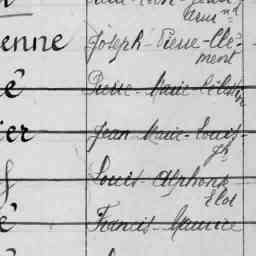 Arm^nd
enne Joseph-Pierre-Clé-
ment
é Pierre-Marie-Célestin
ier Jean Marie-Louis-
Jh
Louis-Alphons
Eloi
é Francis-Maurice